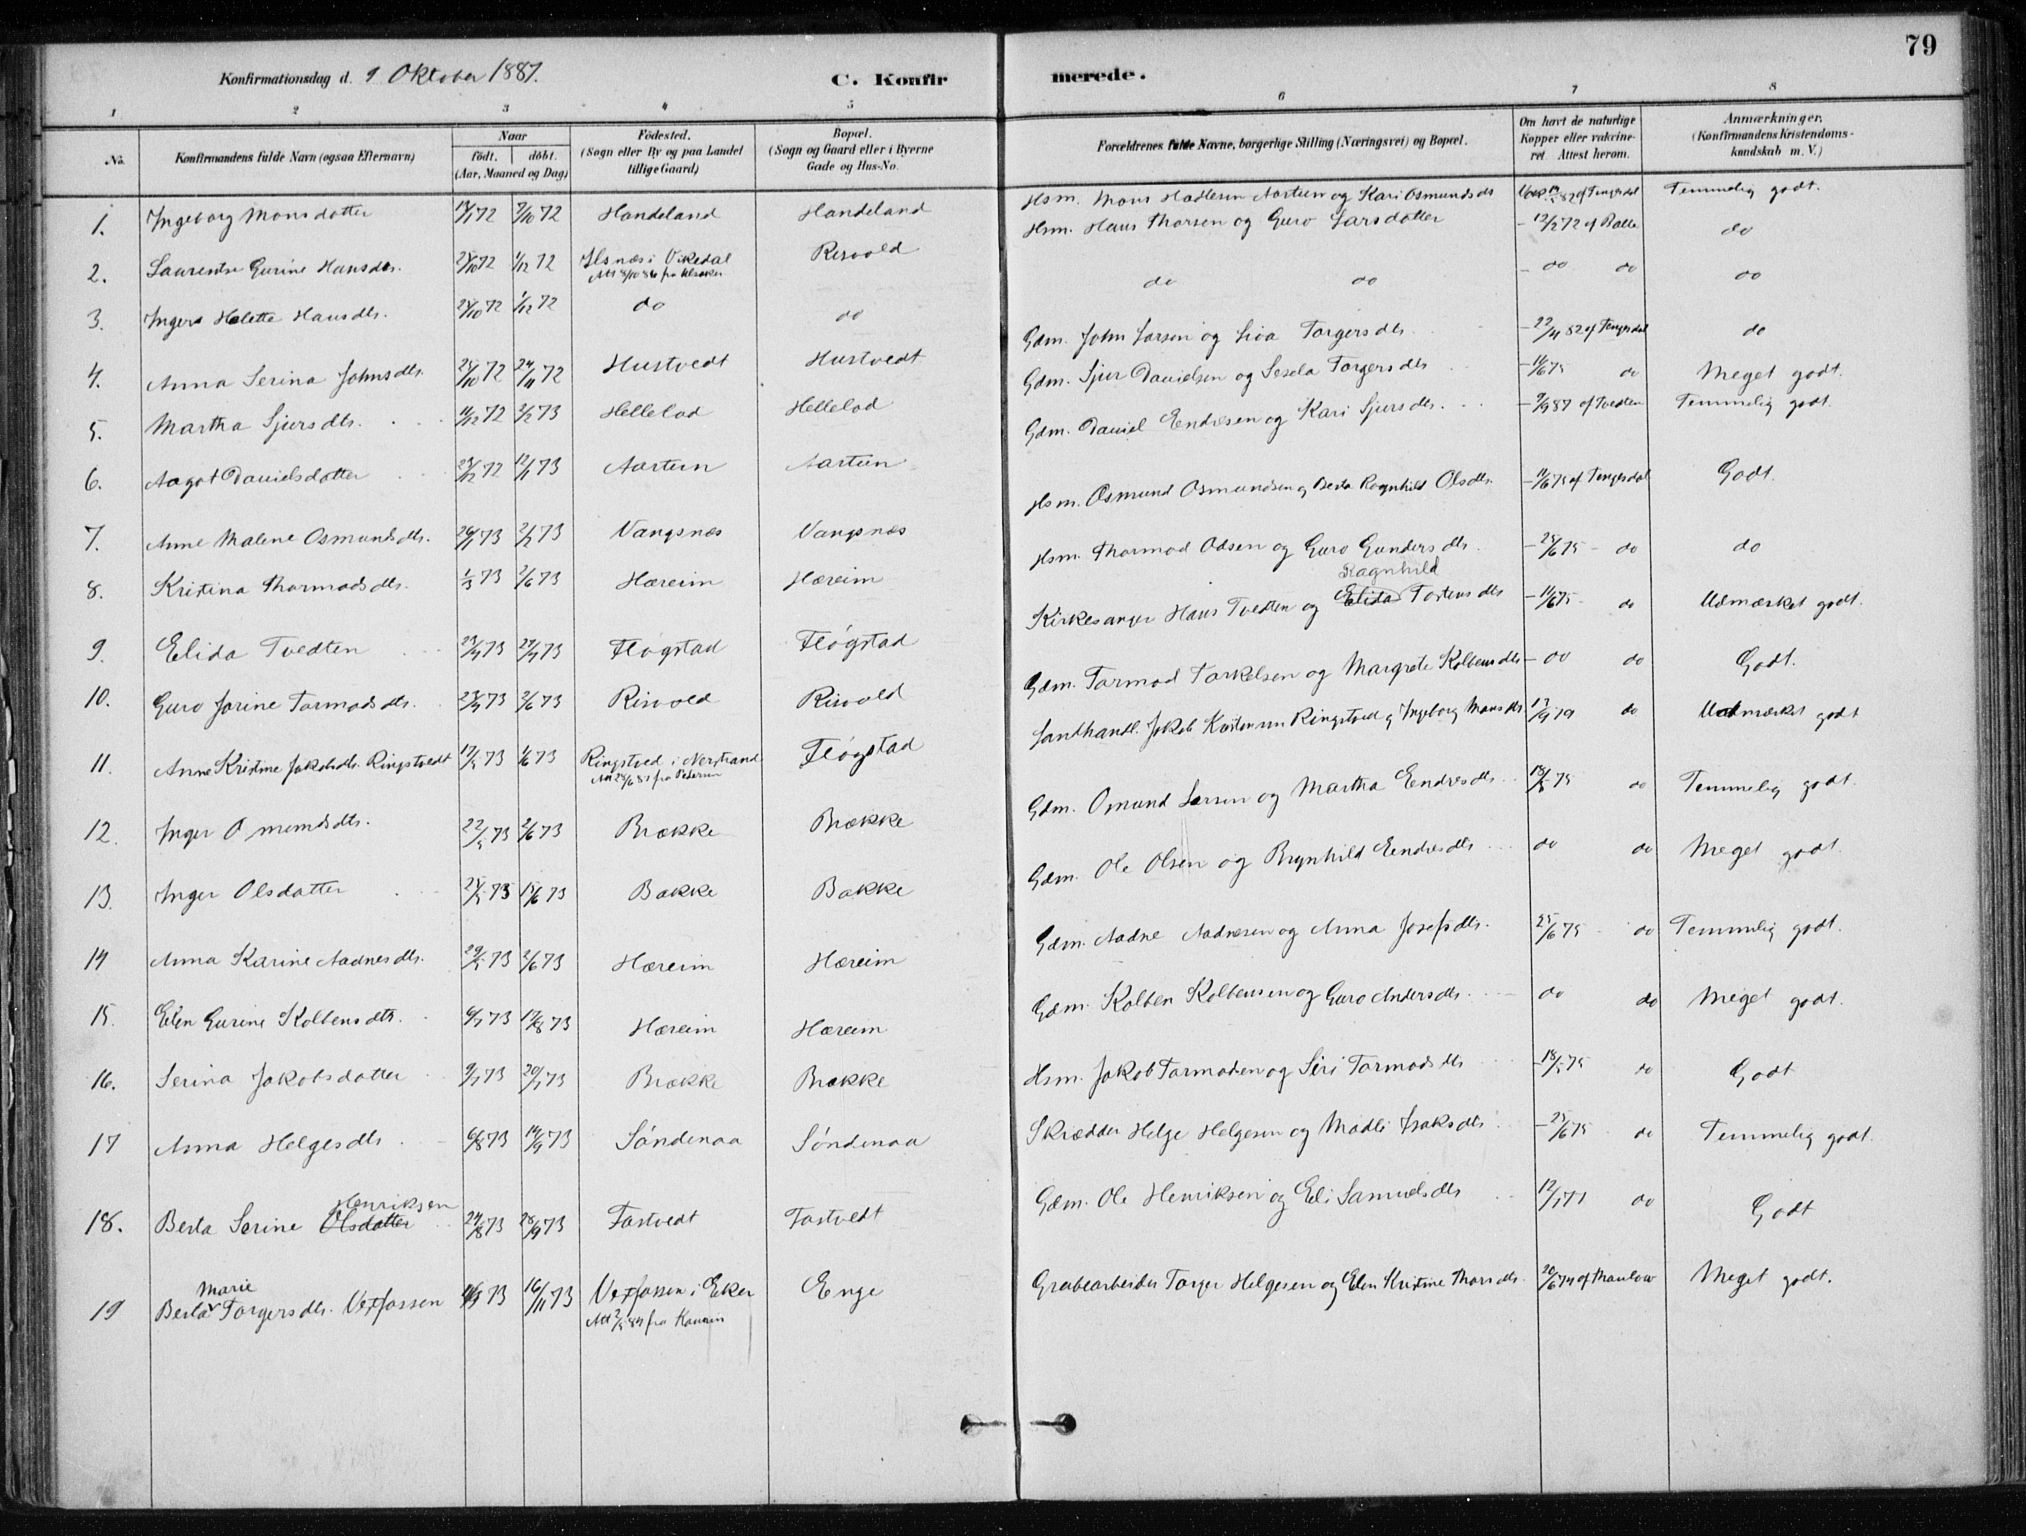 79
Konfirmationsdag d. 9 Oktober 1887.
C. Konfirmerede.
1 2 3 4 5 6 7 8
No. Konfirmandens fulde Navn (ogsaa Efternavn) Naar födt. döbt. (Aar, Maaned og Dag) Födested. (Sogn eller By og paa Landet tillige Gaard) Bopæl. (Sogn og Gaard eller i Byerne Gade og Hus-No. Forældrenes fulde Navne, borgerlige Stilling (Næringsvei) og Bopæl. Om havt de naturlige Kopper eller vakcineret Attest herom. Anmærkninger. (Konfirmandens Kristendomskundskab m. V.)
1. Ingeborg Monsdatter 72 7/10 72 Handeland Handeland Hsm. Mons Hadlesen Aartun og Kari Osmundsdt 82 af Tengesdal Temmelig godt.
2. Laurentse Gurine Hansdtr. 25/10 72 1/12 72 Ilsnæs i Vikedal Risvold Hsm. Hans Thorsen og Guro Larsdatter - 12/2 72 af Balle do
Att 8/10 86 fra
3. Inger Helette Hansdtr. 25/10 72 1/12 72 do do do do - do do do
4. Anna Serina Johnsdtr. 25/10 72 24/11 72 Hustvedt Hustvedt Gdm. John Larsen og Siva Torgersdtr. - 22/4 82 af Tengesdal do
5. Martha Sjursdtr. 11/12 72 2/2 73 Hellelad Hellelad Gdm. Sjur Danielsen og Sesela Torgersdtr - 11/6 75 do Meget godt.
6. Aagot Danielsdatter 29/12 72 12/1 73 Aartun Aartun Gdm. Daniel Endresen og Kari Sjursdtr. - 9/9 87 af Tvedten Temmelig godt.
7. Anne Malene Osmundsdtr. 26/1 73 2/2 73 Vangsnæs Vangsnæs Hsm. Osmund Osmundsen og Berta Ragnhild Olsdtr. - 11/6 75 af Tengesdal Godt.
8. Kristina Thormodsdtr. 1/3 73 2/6 73 Hæreim Hæreim Hsm. Thormod Odsen og Guro Gundersdtr. - 25/6 75 - do do
Ragnhild
9. Elida Tvedten 23/4 73 27/4 73 Fløgstad Fløgstad Kirkesanger Hans Tvedten og Elida Tostensdtr - 11/6 75 - do Udmærket godt.
10. Guro Jorine Tormodsdtr. 23/4 73 2/6 73 Risvold Risvold Gdm. Tormod Torkelsen og Margrete Kolbensdtr - do do Godt.
11. Anne Kristine Jakobsdtr. Ringstvedt 17/5 73 1/6 73 Ringstved i Nerstrand Fløgstad Landhandl. Jakob Ringstved og Ingeborg Monsdtr 79 do Udmærket godt
Att 28/6 87 fra
12. Inger Omundsdtr. 22/5 73 2/6 73 Brække Brække Gdm. Omund Larsen og Martha Endresdtr 18/5 75 do Temmelig godt.
13. Inger Olsdatter 25/5 73 15/6 73 Bakke Bakke Gdm. Ole Olsen og Brynhild Eendresdtr do do Meget godt.
14 Anna Karine Aadnesdtr. 29/5 73 2/6 73 Hæreim Hæreim Gdm. Aadne Aadnesen og Anna Josefsdtr. 25/6 75 do Temmelig godt.
15. Elen Gurine Kolbensdtr. 6/7 73 17/8 73 Hæreim Hæreim Gdm. Kolben Kolbensen og Guro Andersdtr. do do Meget godt.
16. Serina Jakobsdatter 9/7 73 20/7 73 Brække Brække Hsm. Jakob Tormodsen og Siri Tormodsdtr - 18/5 75 do Godt
17 Anna Helgesdtr 6/8 73 14/9 73 Søndenaa Søndenaa Skrædder Helge Helgesen og Madli Isaksdtr - 25/6 75 do Temmelig godt.
Henriksen
18. Berta Serine Olsdatter 24/8 73 28/9 73 Tostvedt Tostvedt Gdm. Ole Henriksen og Eli Samuelsdtr 12/7 77 do Godt
Marie
19 Berta Torgersdtr. Vestfossen 73 16/11 73 Vestfossen i Eker Enge Grubearbeider Torger Helgesen og Elen Kristine Thorsdtr. 20/6 74 af Thaulow Meget godt.
Att 84 fra